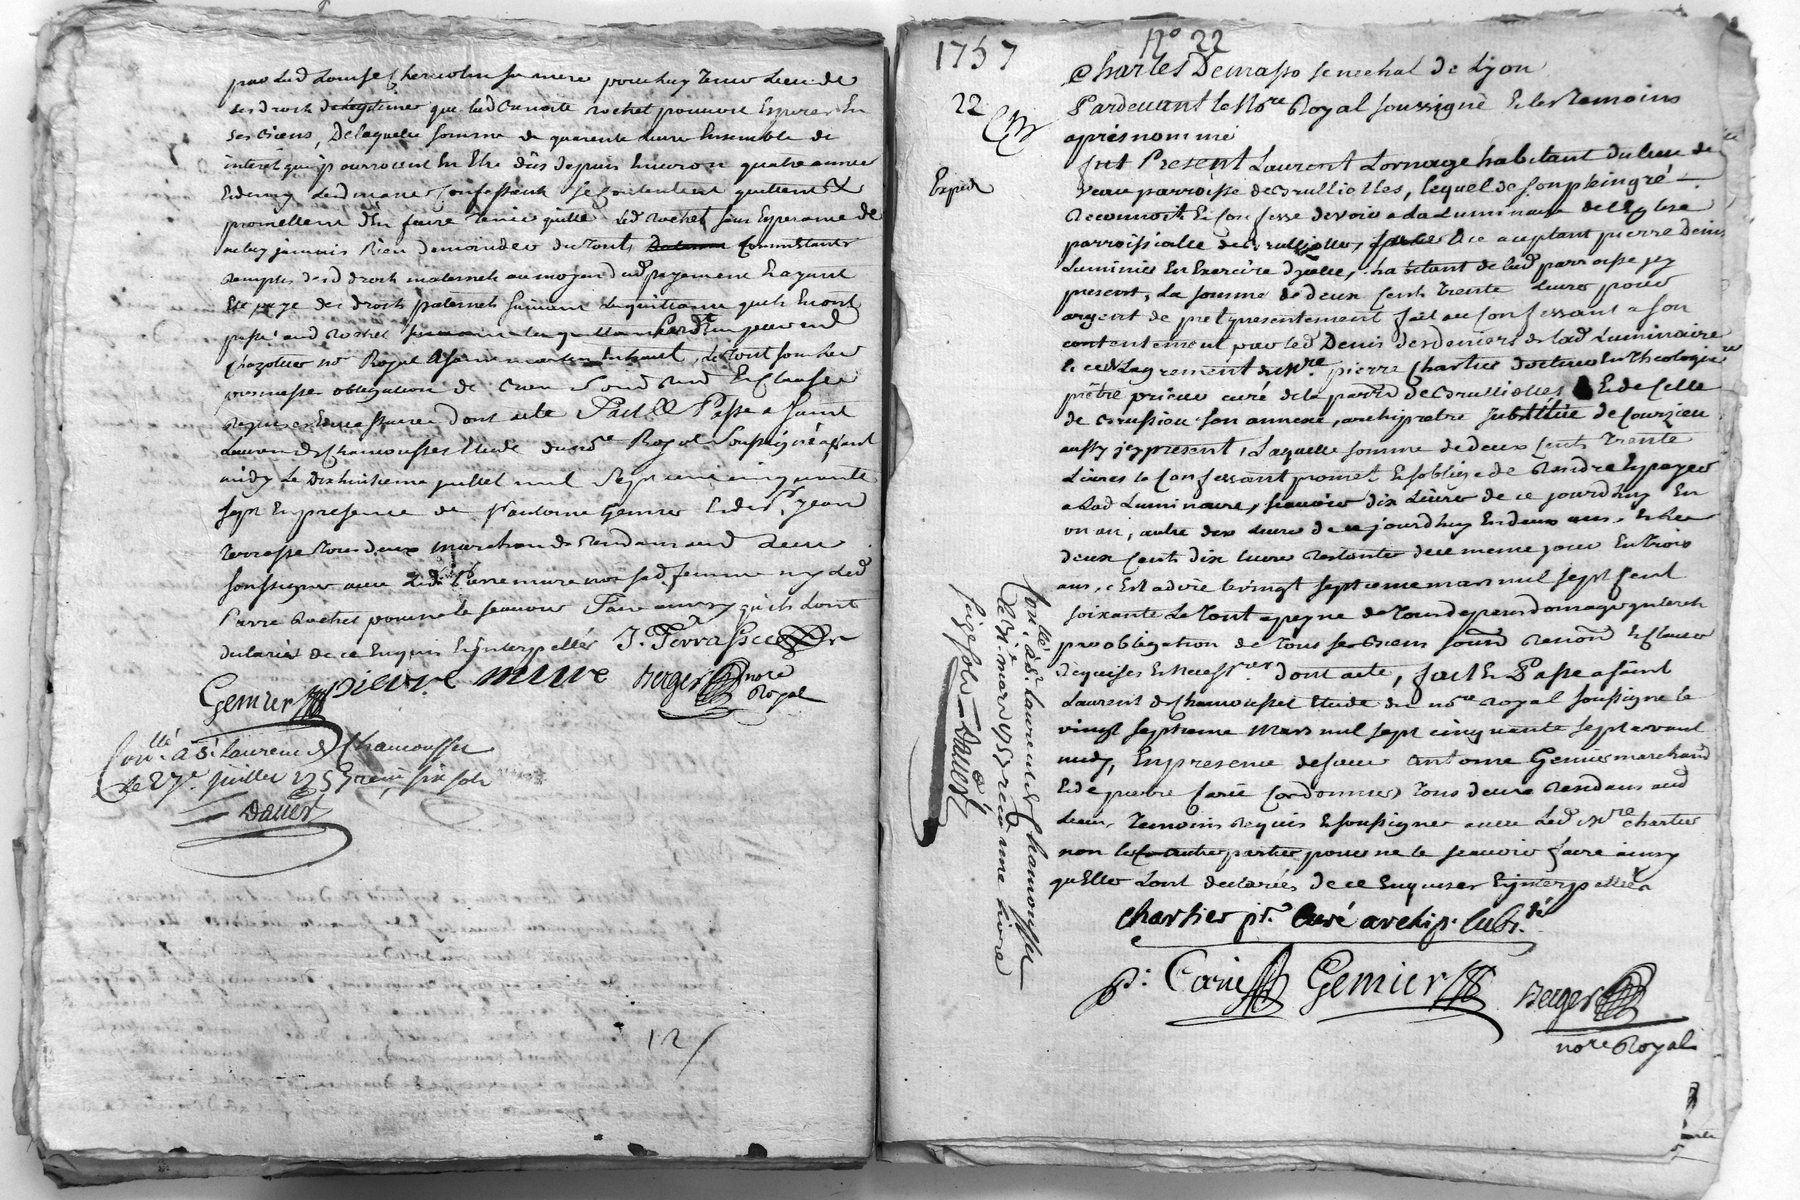 par lad Louise sa mere pour luy tenir Lieu de
ses droits que lad Benoite rochet pouvoit Esperer En
ses biens, De laquelle somme de quarente Livre Ensemble de
interet qui pourroient En Etre dûs depuis Environ quatre année
led mariés Confessants se Contentent quittent &
promettent d'En faire tenir quitte led rochet sans Esperance de
ne luy jamais Rien demander du tout,
remplis desd droits maternels au moyen dud payement Et ayant
Eté payé des droits paternels suivant la quittance quils En ont
passé aud rochet
no.re Royal le tout sous leur
promesse obligation de Clauses
requises dont acte fait & Passé a saint
Laurent de Chamousset Etude du no.re Royal Soussigné avant
midy Le dixhuitieme juillet mil Sept cent cinquante
sept En presence de s.r antoine Gemier Et de s.r jean
terrasse tous deux marchands Residants aud Lieu
soussignés avec Led. Pierre mure non sad. femme ny Led
Pierre Rochet pour ne le scavoir faire ainsy qu'ils L'ont
declarés de ce Enquis & interpellés J. Terrasse
Gemier pierre mure Berger no.re Royal
Con.llé a S.t Laurent de Chamousset
le 27.e Juillet 1757 reçu six sols
Dauest
12/
1757
N.o 22
22
Exped
Charles Demasso senechal de Lyon
Pardevant le No.re Royal soussigné & les temoins
après nommé
fut Present Laurent Lornage habitant du lieu de
parroisse de Brulliolles, lequel de son plein gré
Reconnoit & Confesse devoir a La Luminaire de l'Eglise
parroissialle de Brulliolles, a ce acceptant pierre Denis
Luminier En Exercice d'icelle, habitant de lad parroisse icy
present, La somme de deux Cents trente Livres pour
argent de pret presentement fait au Confessant a son
contentement par led Denis des deniers de lad Luminaire
de l'agrement de M.re pierre Chartier docteur En Theologie
prêtre prieur curé de la parr.e de Brulliolles Et de Celle
de Brussieu son annexe, archiprêtre substitué de Courzieu
aussy icy present, Laquelle somme de deux Cents trente
Livres le Confessant promet & s'oblige de Rendre & payer
a Lad Luminaire, scavoir dix Livres de ce jourdhuy En
un an, autre dix Livre de ce jourdhuy En deux ans, & les
deux Cents dix Livre Restante de ce meme jour En trois
ans, C'Est adire le vingt septieme mars mil sept Cent
soixante Le tout a peyne de tous depens domages interets
par obligation de tous ses biens Renon & Clauses
Requises & necess.res dont acte, fait & Passé a saint
Laurent de Chamousset Etude du no.re royal soussigné le
vingt septieme Mars mil sept cinquante sept avant
midy, En presence de sieur antoine Gemier marchand
Et de pierre Carié Cordonnier tous deux Residans aud
Lieu, temoins Requis & soussignés avec Led. M.re chartier
non les autres parties pour ne le scavoir faire ainsy
qu'Elles L'ont declarées de ce Enquises & interpellées
Chartier pr. Curé archip. Subs.dé
p. Carié Gemier Berger
no.re Royal
Con.llé a S.t Laurent de Chamousset
le 31.e mars 1757 recu une livre
seize sols Dauest